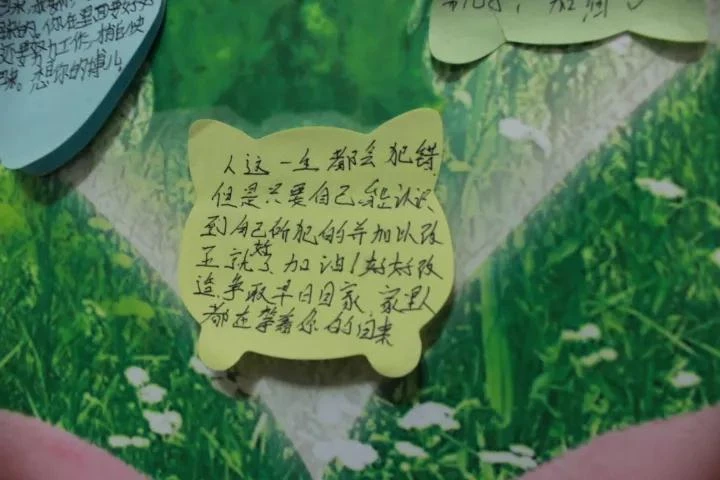 你在里面要好好
还要努力工作
想你的博儿
加油
人这一生都会犯错
但是只要自己能认识
到自己所犯的并加以改
正就好了加油!好好改
造争取早日回家 家里人
都在等着你的回来